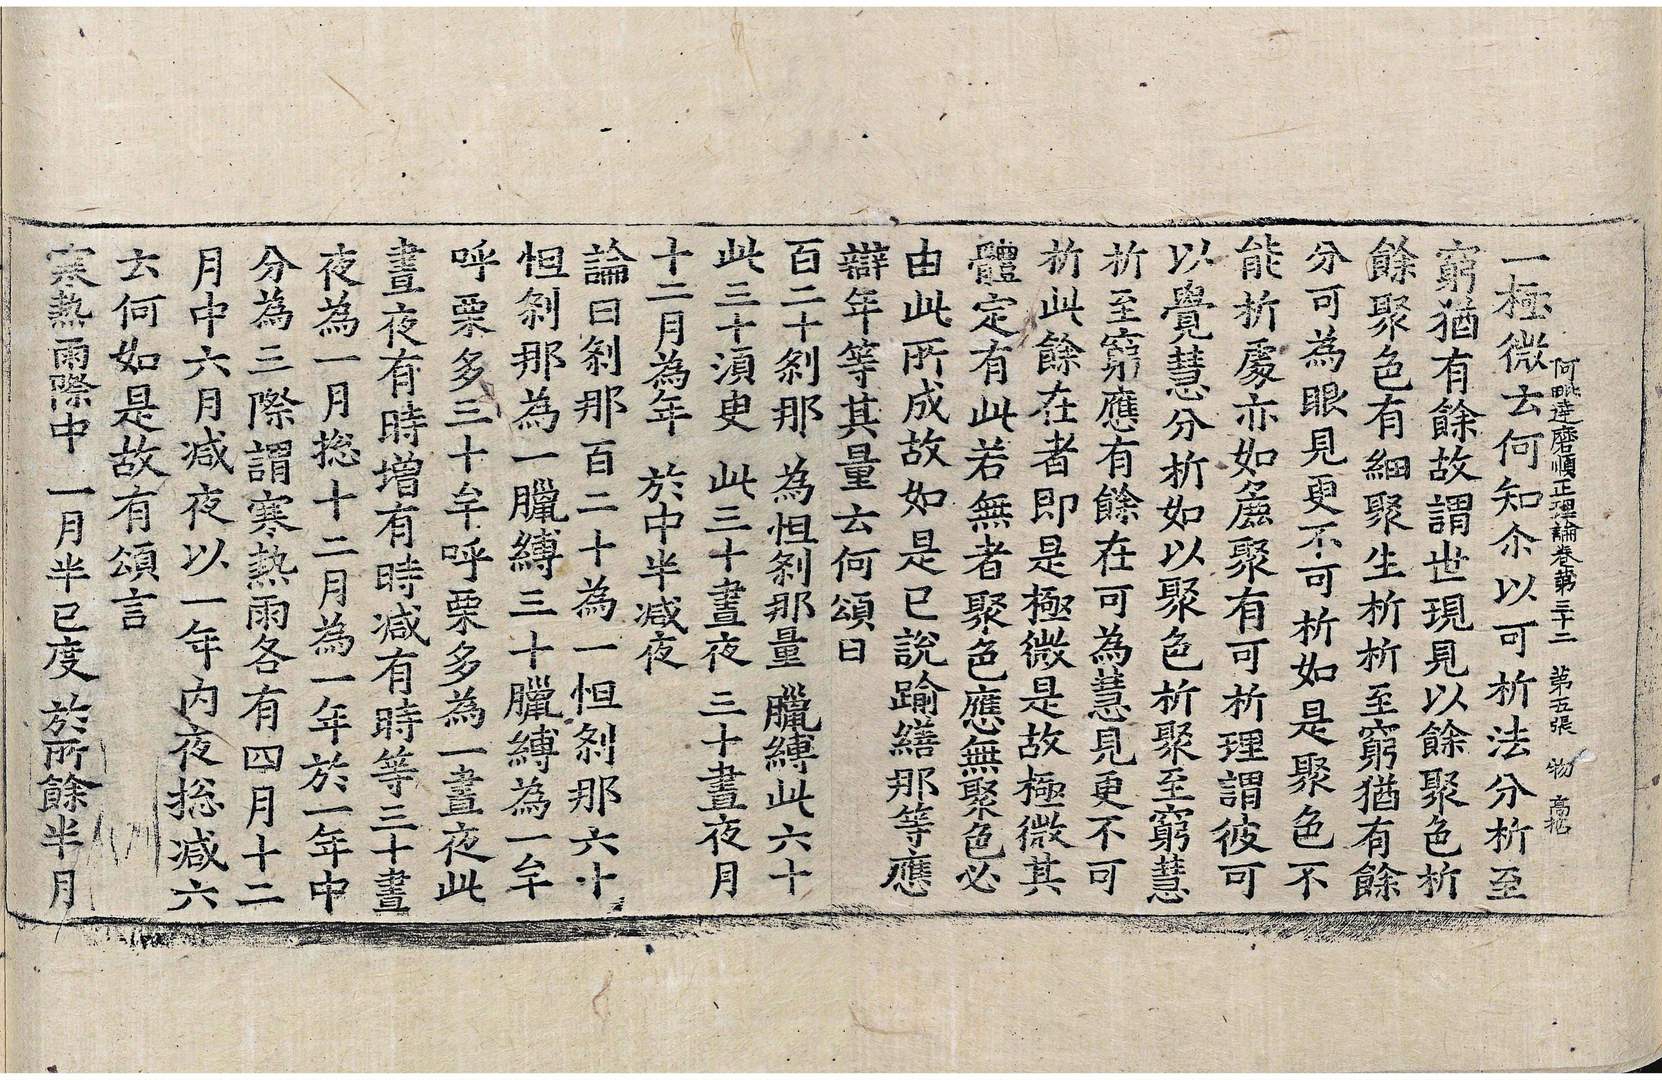 阿毗達磨順正理論卷第三十二 第五張 物 高
一極微云何知尒以可析法分析至
窮猶有餘故謂世現見以餘聚色析
餘聚色有細聚生析析至窮猶有餘
分可為眼見更不可析如是聚色不
能析處亦如麁聚有可析理謂彼可
以覺慧分析如以聚色析聚至窮慧
析至窮應有餘在可為慧見更不可
析此餘在者即是極微是故極微其
體定有此若無者聚色應無聚色必
由此所成故如是已說踰繕那等應
辯年等其量云何頌曰
百二十剎那 為怛剎那量 臘縛此六十
此三十湏臾 此三十晝夜 三十晝夜月
十二月為年 於中半减夜
論曰剎那百二十為一怛剎那六十
怛剎那為一臘縛三十臘縛為一牟
呼栗多三十牟呼栗多為一晝夜此
晝夜有時增有時减有時等三十晝
夜為一月惣十二月為一年於一年中
分為三際謂寒熱雨各有四月十二
月中六月减夜以一年內夜惣减六
云何如是故有頌言
寒熱雨際中 一月半已度 於所餘半月